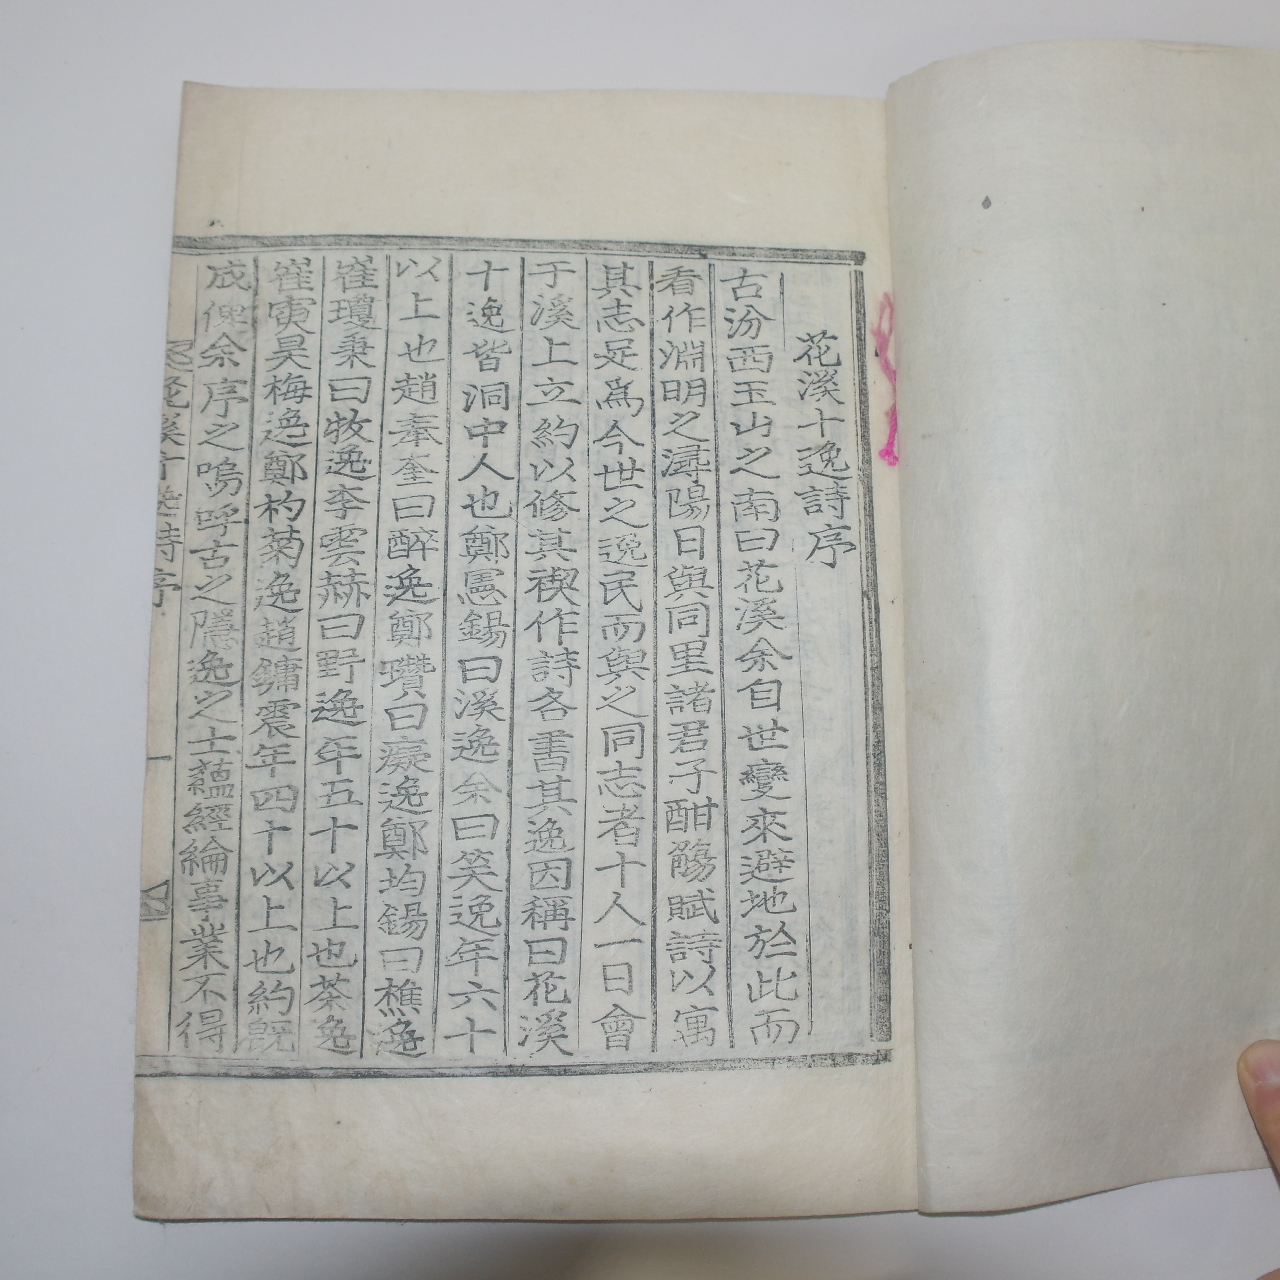 花溪十逸詩序
古汾西玉山之南曰花溪余自世變來避地於此而
看作淵明之潯陽日與同里諸君子酣觴賦詩以寓
其志足爲今世之逸民而與之同志者十人一日會
于溪上立約以修其禊作詩各書其逸因稱曰花溪
十逸皆洞中人也鄭憲錫曰溪逸余曰笑逸年六十
以上也趙奉奎曰醉逸鄭瓚曰癡逸鄭均錫曰樵逸
崔瓊秉曰牧逸李雲赫曰野逸年五十以上也茶逸
崔寅昊梅逸鄭杓菊逸趙鏞震年四十以上也約旣
成俾余序之嗚呼古之隱逸之士蘊經綸事業不得
花溪十逸詩序
一